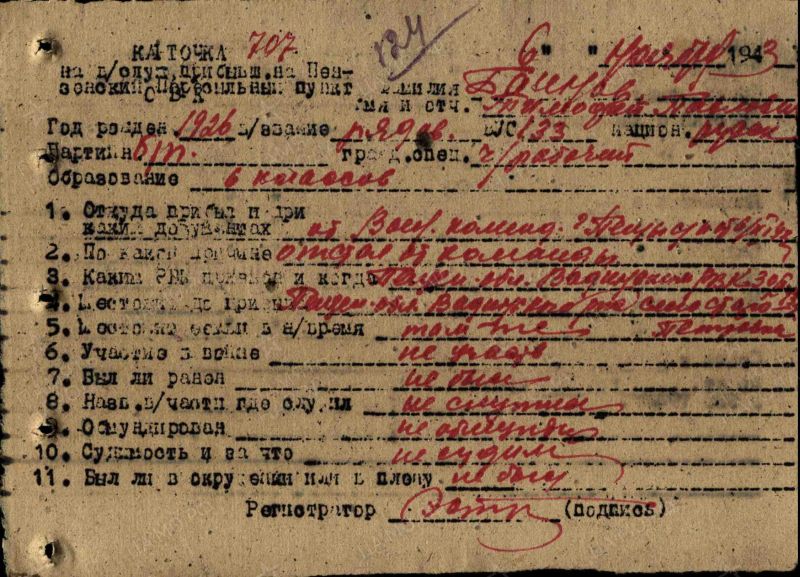 КАРТОЧКА 707 124 6 " " ноября 1943
на в/служ. прибыш. на Пен-
зенский Пересыльный пункт фамилия Баинов
С В К Имя и отч. Тимофей
Год рожден 1926 в/звание рядов. ВУС 133 национ. русск
Партийн б/п. гражд. спец. ч/рабочий
Образование 6 классов
1. Откуда прибыл и при
каких документах от Воен. коменд.
2. По какой причине отстал от команды
3. Каким РВК призван и когда Пензен. обл. Вадинским РВК
4. Местожит. до призыва Пензен. обл Вадинский
5. Местожит семьи в н/время там же
6. Участие в войне не участв
7. Был ли ранен не был
8. Назв. в/части где служил не служил
9. Обмундирован не обмунд
10. Судимость и за что не судим
11. Был ли в окружении или в плену не был
Регистратор (подпись)